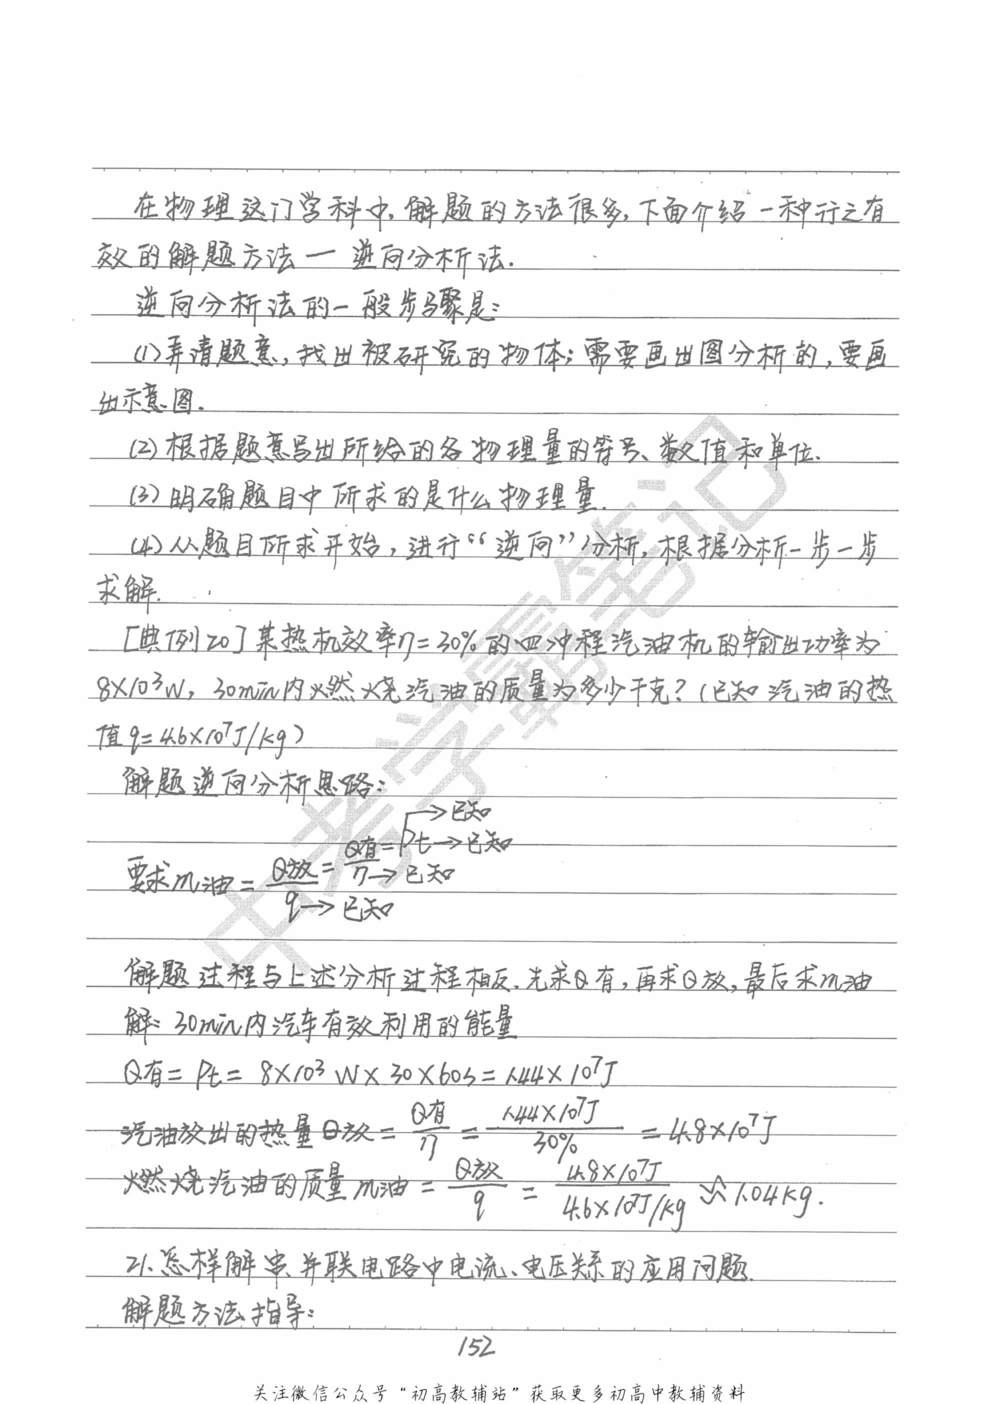 在物理这门学科中,解题的方法很多,下面介绍一种行之有
效的解题方法一 逆向分析法.
逆向分析法的一般步骤是:
(1)弄清题意,找出被研究的物体;需要画出图分析的,要画
出示意图.
(2)根据题意写出所给的各物理量的符号、数值和单位.
(3)明确题目中所求的是什么物理量.
(4)从题目所求开始,进行“逆向”分析,根据分析一步一步
求解.
[典例20]某热机效率η=30%的四冲程汽油机的输出功率为
8×10³W,30min内燃烧汽油的质量为多少千克?(已知汽油的热
值q=4.6×10⁷J/kg)
解题逆向分析思路:
要求m油=Q放/q→已知=Q有/η→已知=Pt→已知→已知
解题过程与上述分析过程相反.先求Q有,再求Q放,最后求m油
解:30min内汽车有效利用的能量
Q有=Pt=8×10³W×30×60s=1.44×10⁷J
汽油放出的热量Q放=Q有/η=1.44×10⁷J/30%=4.8×10⁷J
燃烧汽油的质量m油=Q放/q=4.8×10⁷J/4.6×10⁷J/kg≈1.04kg.
21.怎样解串、并联电路中电流、电压关系的应用问题.
解题方法指导:
152
关注微信公众号“初高教辅站”获取更多初高中教辅资料
中考学霸笔记